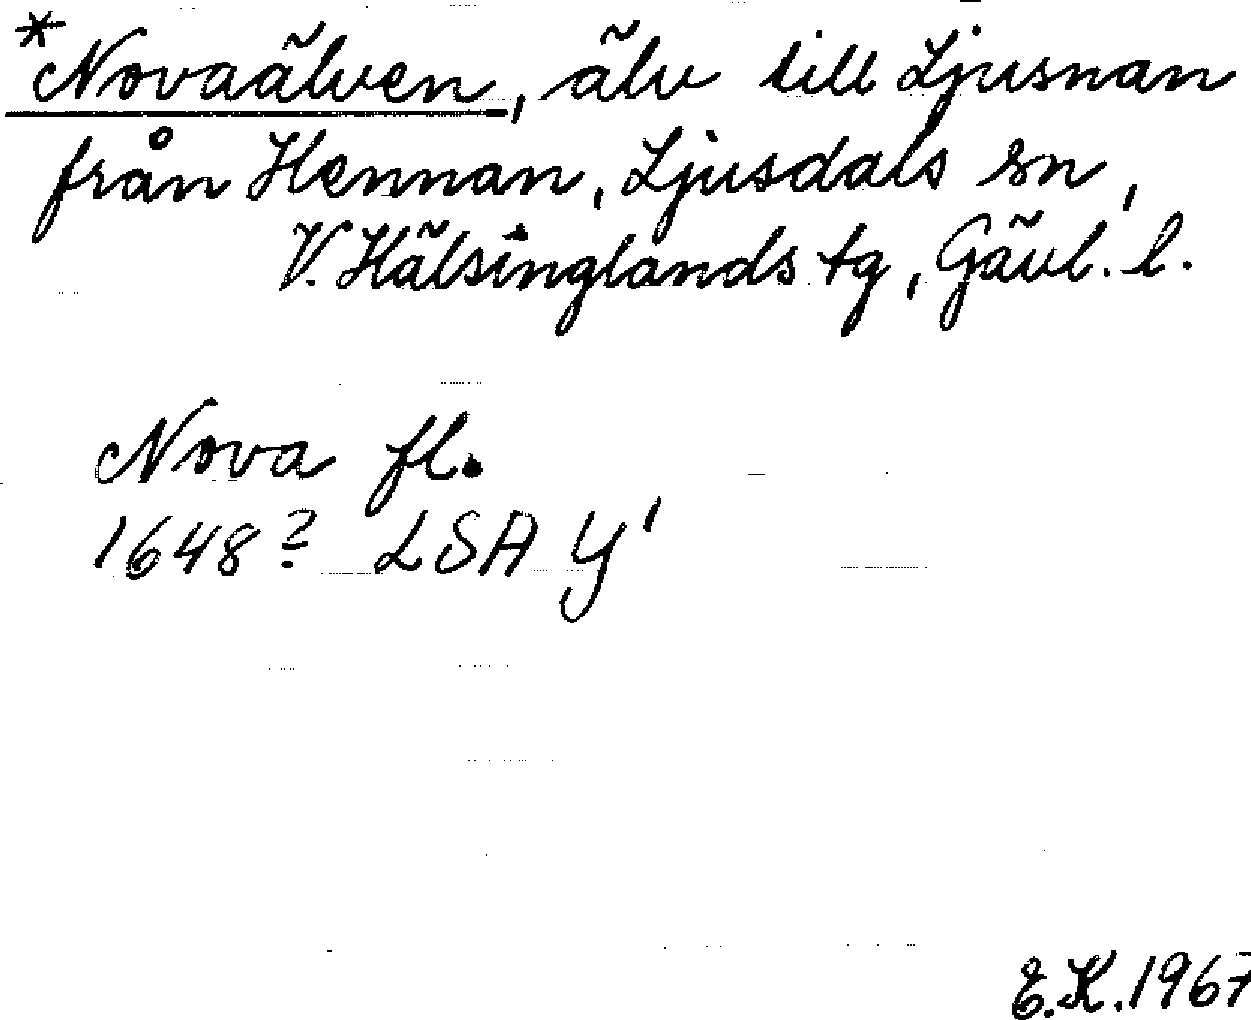 *Novaälven, älv till Ljusnan
från Hennan, Ljusdals sn,
V. Hälsinglands tg, Gävl. l.
Nova fl.
1648? LSA Y'
E.K. 1967